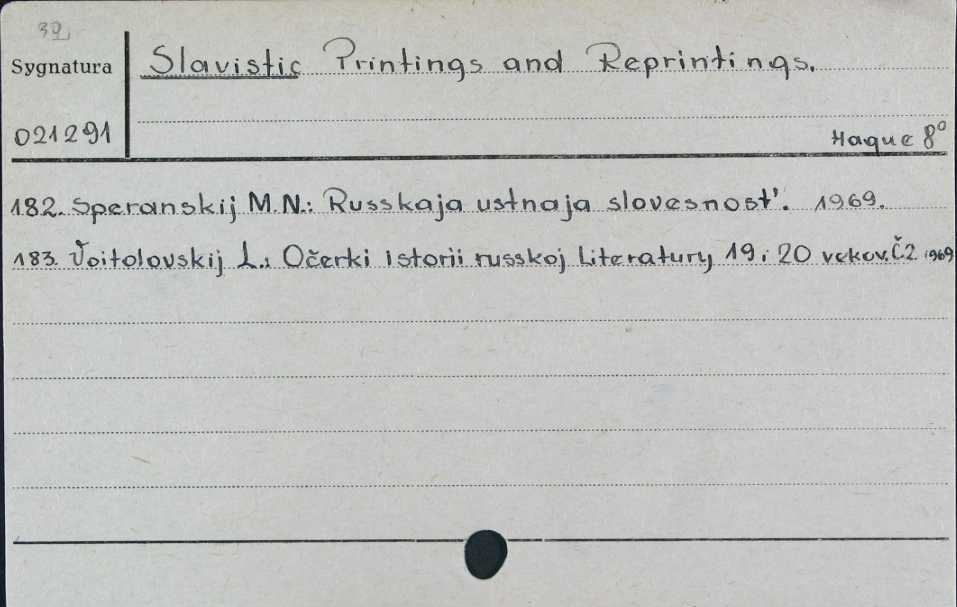 39
Sygnatura
Slavistic Printings and Reprintings.
021291
Haque 8°
182. Speranskij M.N.: Russkaja ustnaja slovesnost'. 1969.
183. Voitolovskij L.: Očerki istorii russkoj literatury 19 i 20 vekov. Č.2 1969